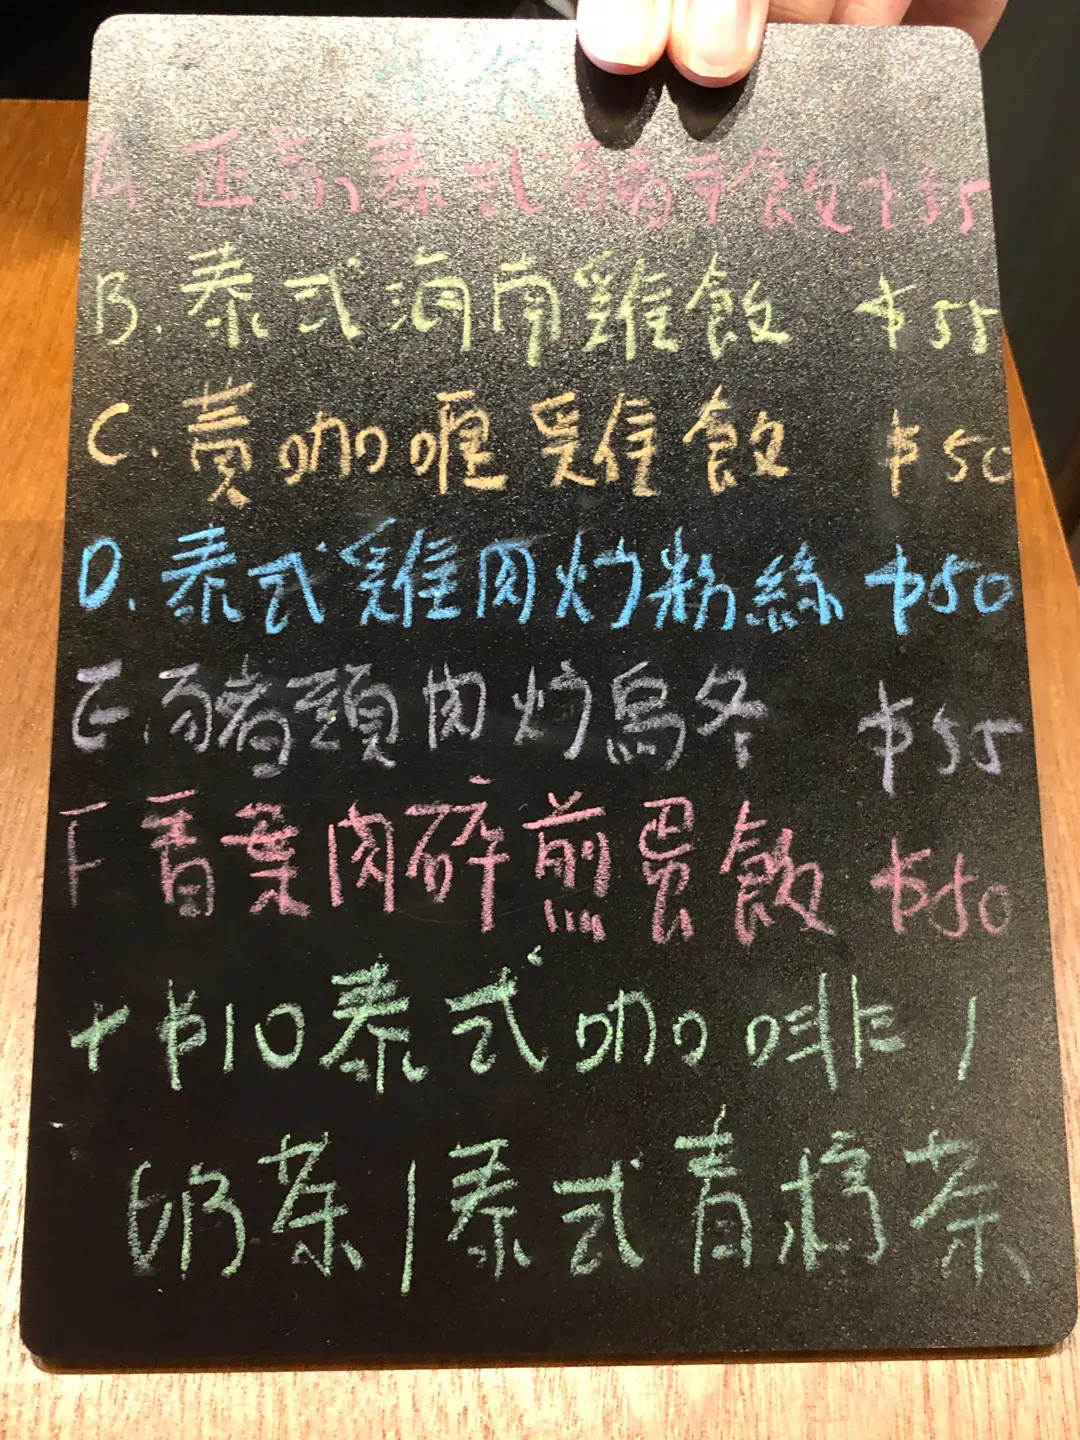 A 正宗泰式豬手飯 $55
B. 泰式海南雞飯 $55
C. 黃咖喱雞飯 $50
D. 泰式雞肉炒粉絲 $50
E. 豬頸肉炒烏冬 $55
F 香葉肉碎煎蛋飯 $50
+$10泰式咖啡/
奶茶/泰式青檸茶